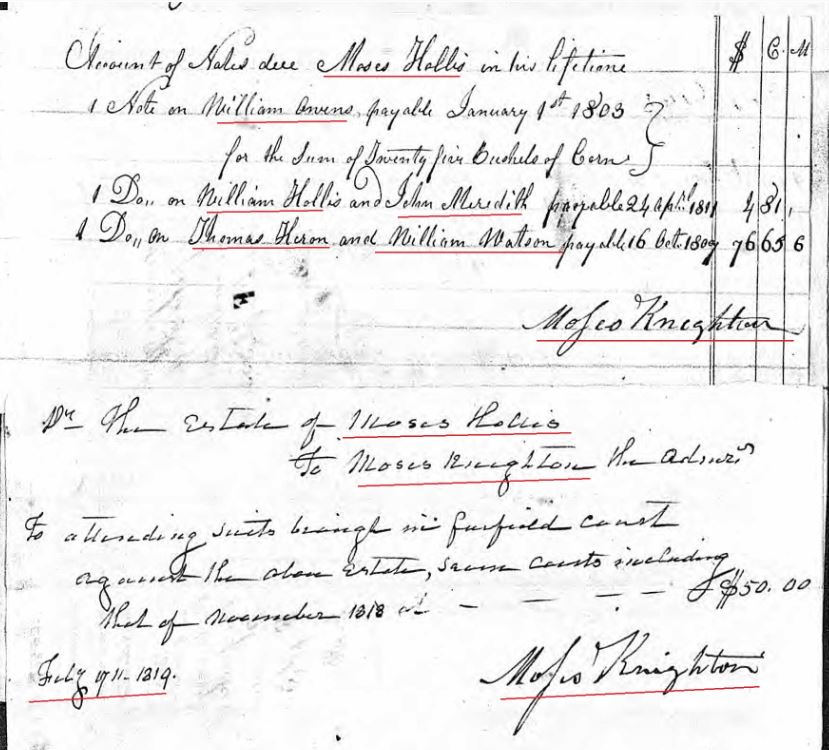 $ C. M
Account of Notes due Moses Hollis in his lifetime
1 Note on William Owens payable January 1st 1803
for the Sum of Twenty five Bushels of Corn
1 Do,, on William Hollis and John Meredith payable 24 Apl. 1811 4 81,
1 Do,, on Thomas Heron and William Watson payable 16 Oct. 1809 76 65 6
Moses Knighton
Dr The Estate of Moses Hollis
To Moses Knighton the Admr.
To attending suits brough in fairfield court
against the above Estate, seven courts including
that of November 1818 $50.00
Feby 17th 1819.
Moses Knighton